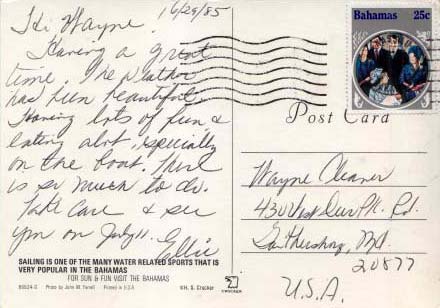 Hi Wayne, 6/29/85
Having a great
time. The weather
has been beautiful
Having lots of fun &
eating alot, especially
on the boat. There
is so much to do.
Take care & see
you on July 11.
Ellie
SAILING IS ONE OF THE MANY WATER RELATED SPORTS THAT IS
VERY POPULAR IN THE BAHAMAS
FOR SUN & FUN VISIT THE BAHAMAS
Photo by John M. Farrell Printed in U.S.A.
©H. S. Crocker
CROCKER
Bahamas 25c
Post Card
Wayne Cleaner
430 West Deer Pk. Rd.
Gaithersburg, Md.
20877
U.S.A.